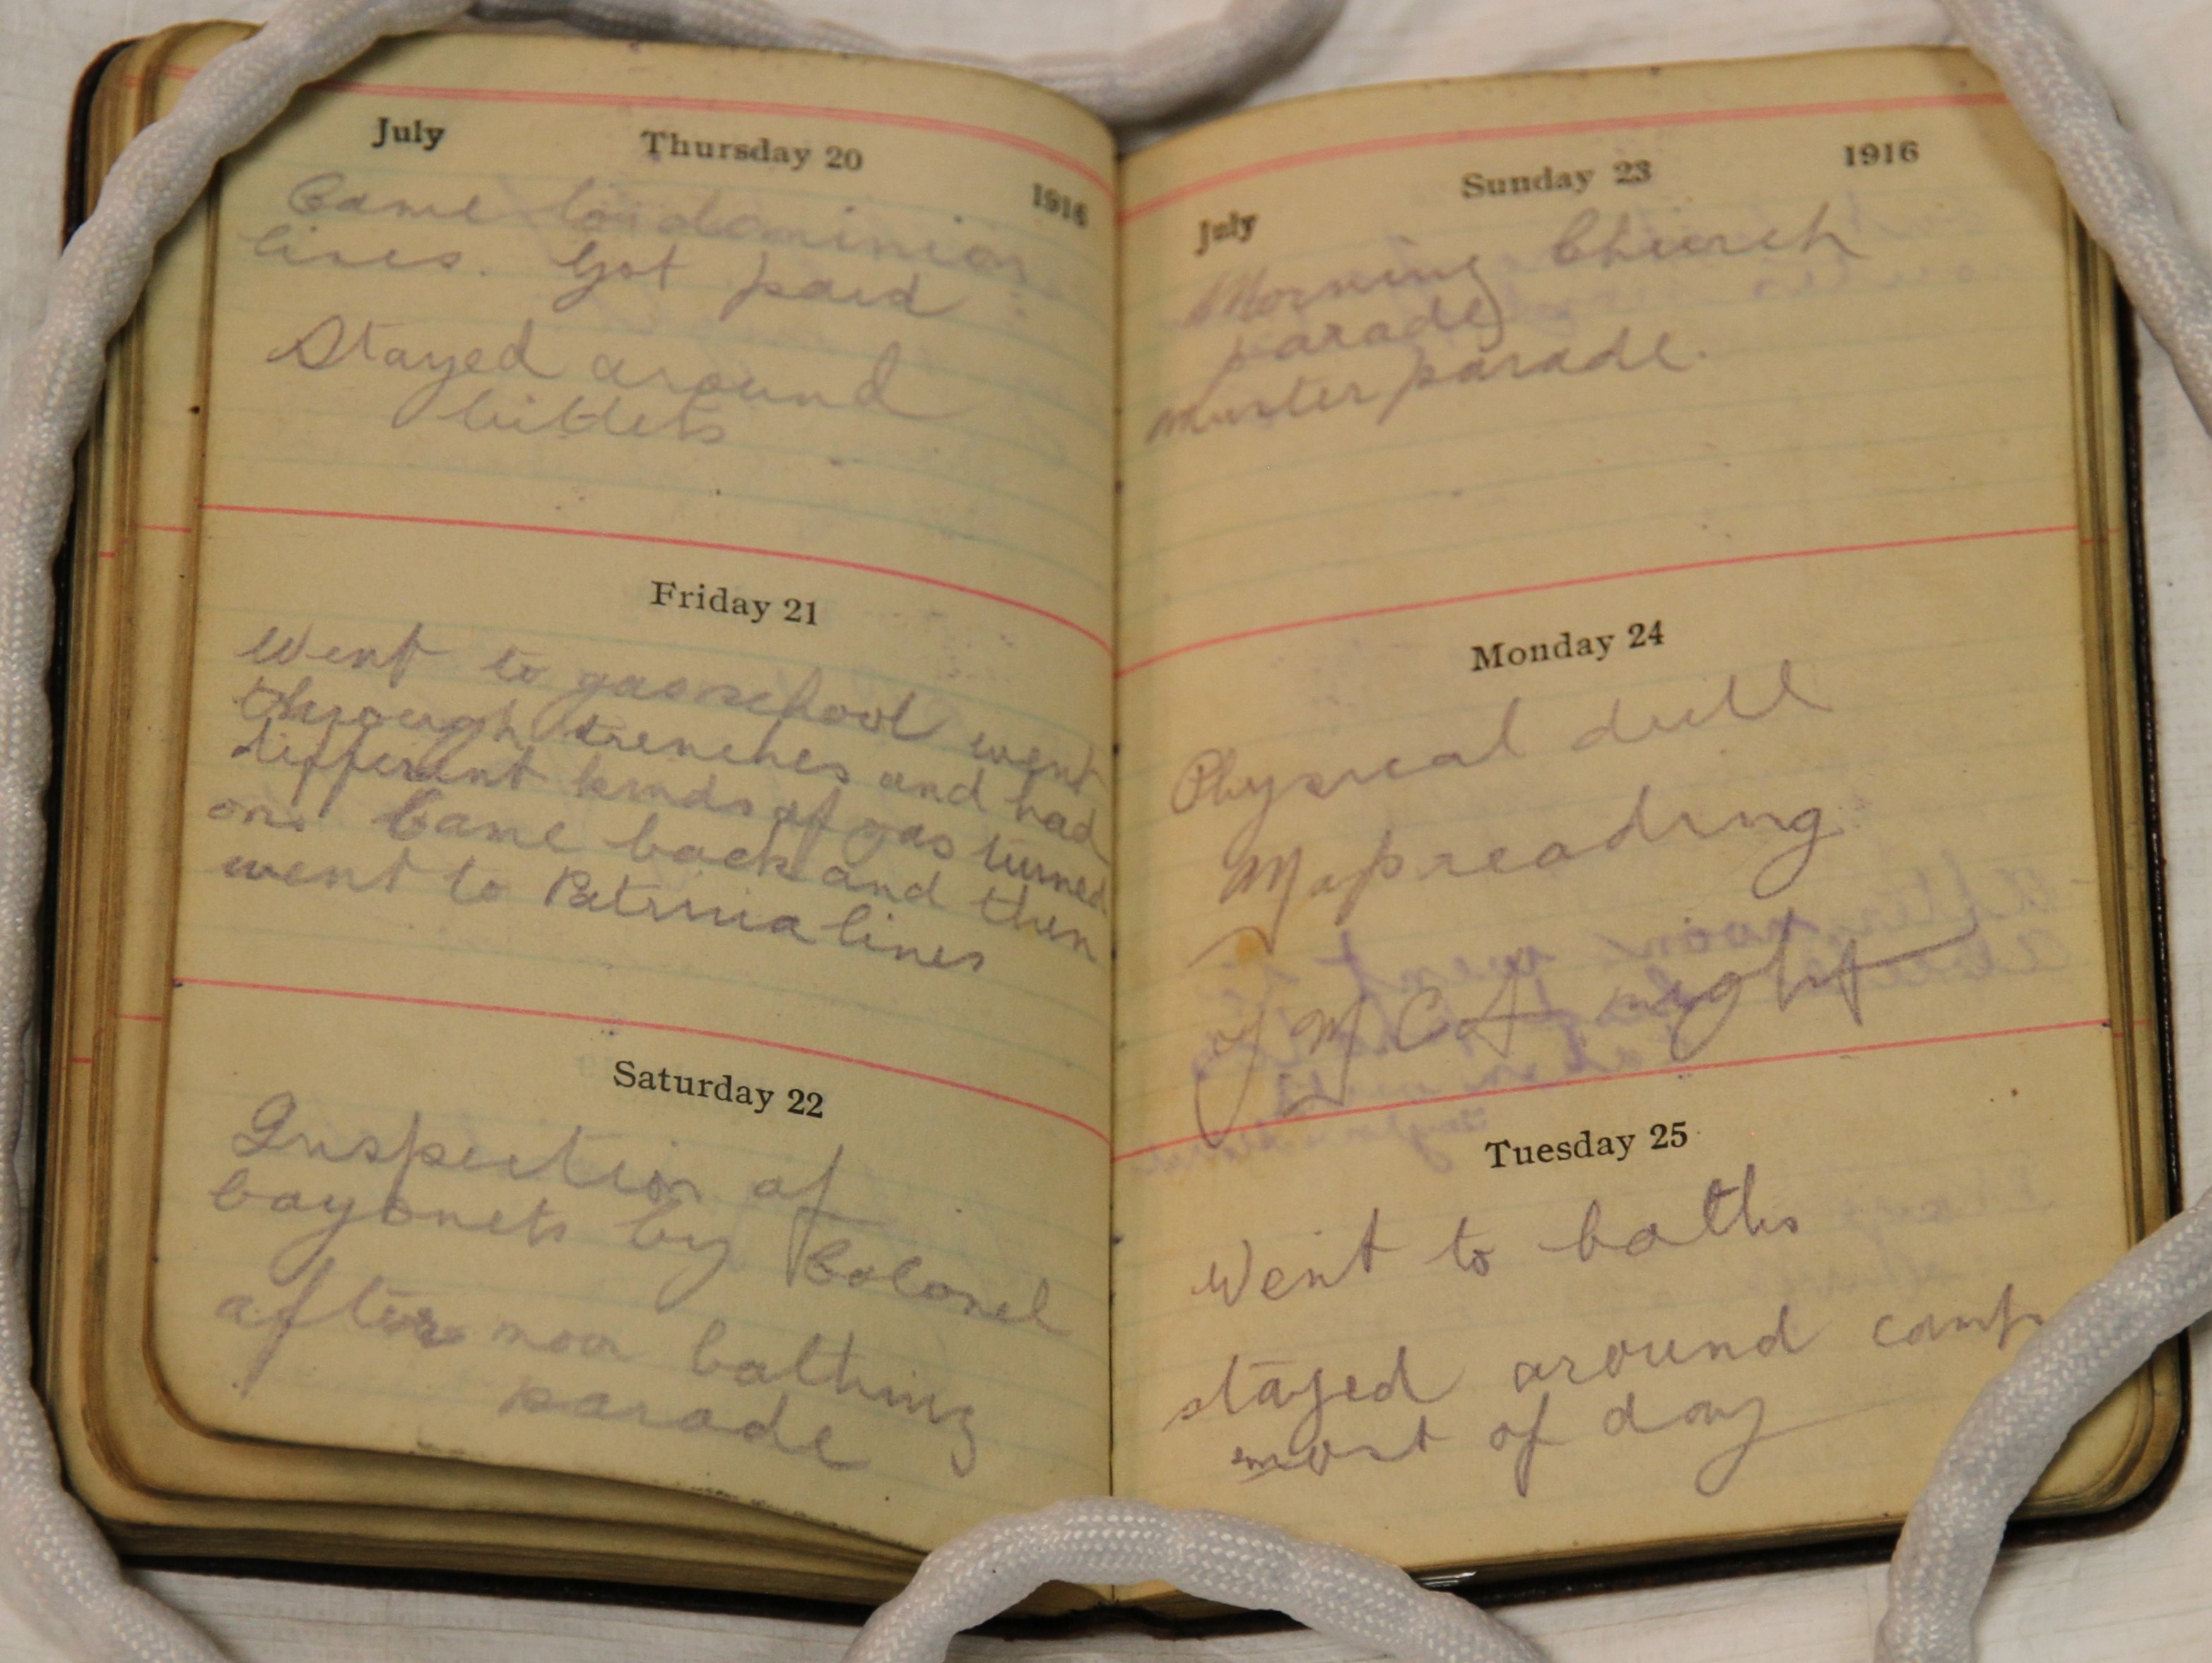 July Thursday 20 1916
Came to dominion
lines. Got paid
Stayed around
billets
Friday 21
Went to gas school went
through trenches and had
different kinds of gas turned
on. Came back and then
went to Patricia lines
Saturday 22
Inspection of
bayonets by Colonel
after noon bathing
parade
July Sunday 23 1916
Morning Church
parade
muster parade.
Monday 24
Physical drill
Map reading
Y M C A night
Tuesday 25
Went to baths
stayed around camp
most of day